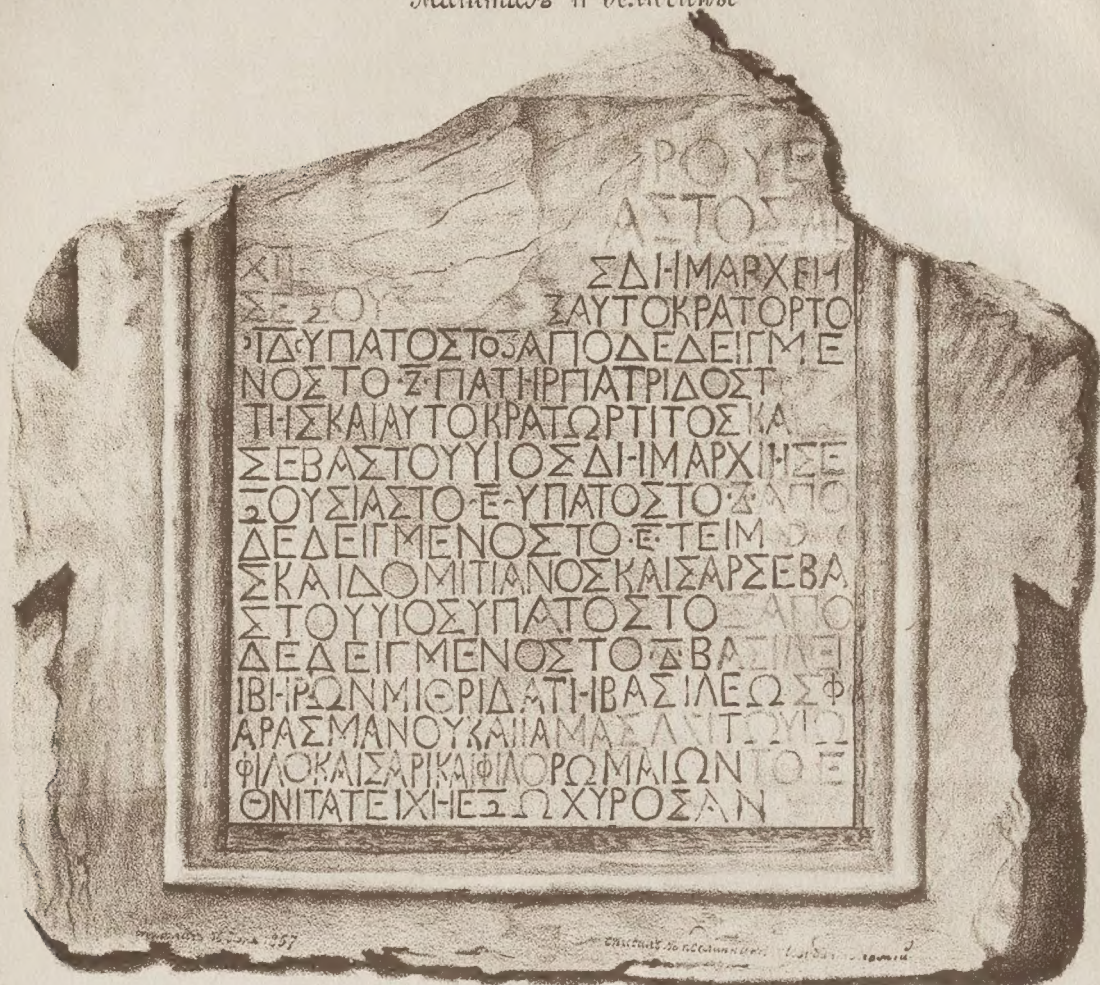 ΡΟΥΕ
ΑΣΤΟΣ
ΣΔΗΜΑΡΧΕΙΗ
ΣΑΥΤΟΚΡΑΤΟΡΤΟ
ΙΔ·ΥΠΑΤΟΣΤΟ ΑΠΟΔΕΔΕΙΓΜΕ
ΝΟΣΤΟ·Ζ·ΠΑΤΗΡΠΑΤΡΙΔΟΣΤ
ΤΗΣΚΑΙΑΥΤΟΚΡΑΤΩΡΤΙΤΟΣΚΑ
ΣΕΒΑΣΤΟΥΥΙΟΣΔΗΜΑΡΧΙΗΣΕ
ΞΟΥΣΙΑΣΤΟ·Ε·ΥΠΑΤΟΣΤΟ·Δ·ΑΠΟ
ΔΕΔΕΙΓΜΕΝΟΣΤΟ·Ε·ΤΕΙΜ
ΣΚΑΙΔΟΜΙΤΙΑΝΟΣΚΑΙΣΑΡΣΕΒΑ
ΣΤΟΥΥΙΟΣΥΠΑΤΟΣΤΟ ΑΠΟ
ΔΕΔΕΙΓΜΕΝΟΣΤΟ·Δ·ΒΑΣΙΛΕΙ
ΙΒΗΡΩΝΜΙΘΡΙΔΑΤΗΙΒΑΣΙΛΕΩΣΦ
ΑΡΑΣΜΑΝΟΥΚΑΙΙΑΜΑΣΑΣΙΤΩΥΙΩ
ΦΙΛΟΚΑΙΣΑΡΙΚΑΙΦΙΛΟΡΩΜΑΙΩΝΤΟΕ
ΘΝΙΤΑΤΕΙΧΗΕΞΩΧΥΡΟΣΑΝ